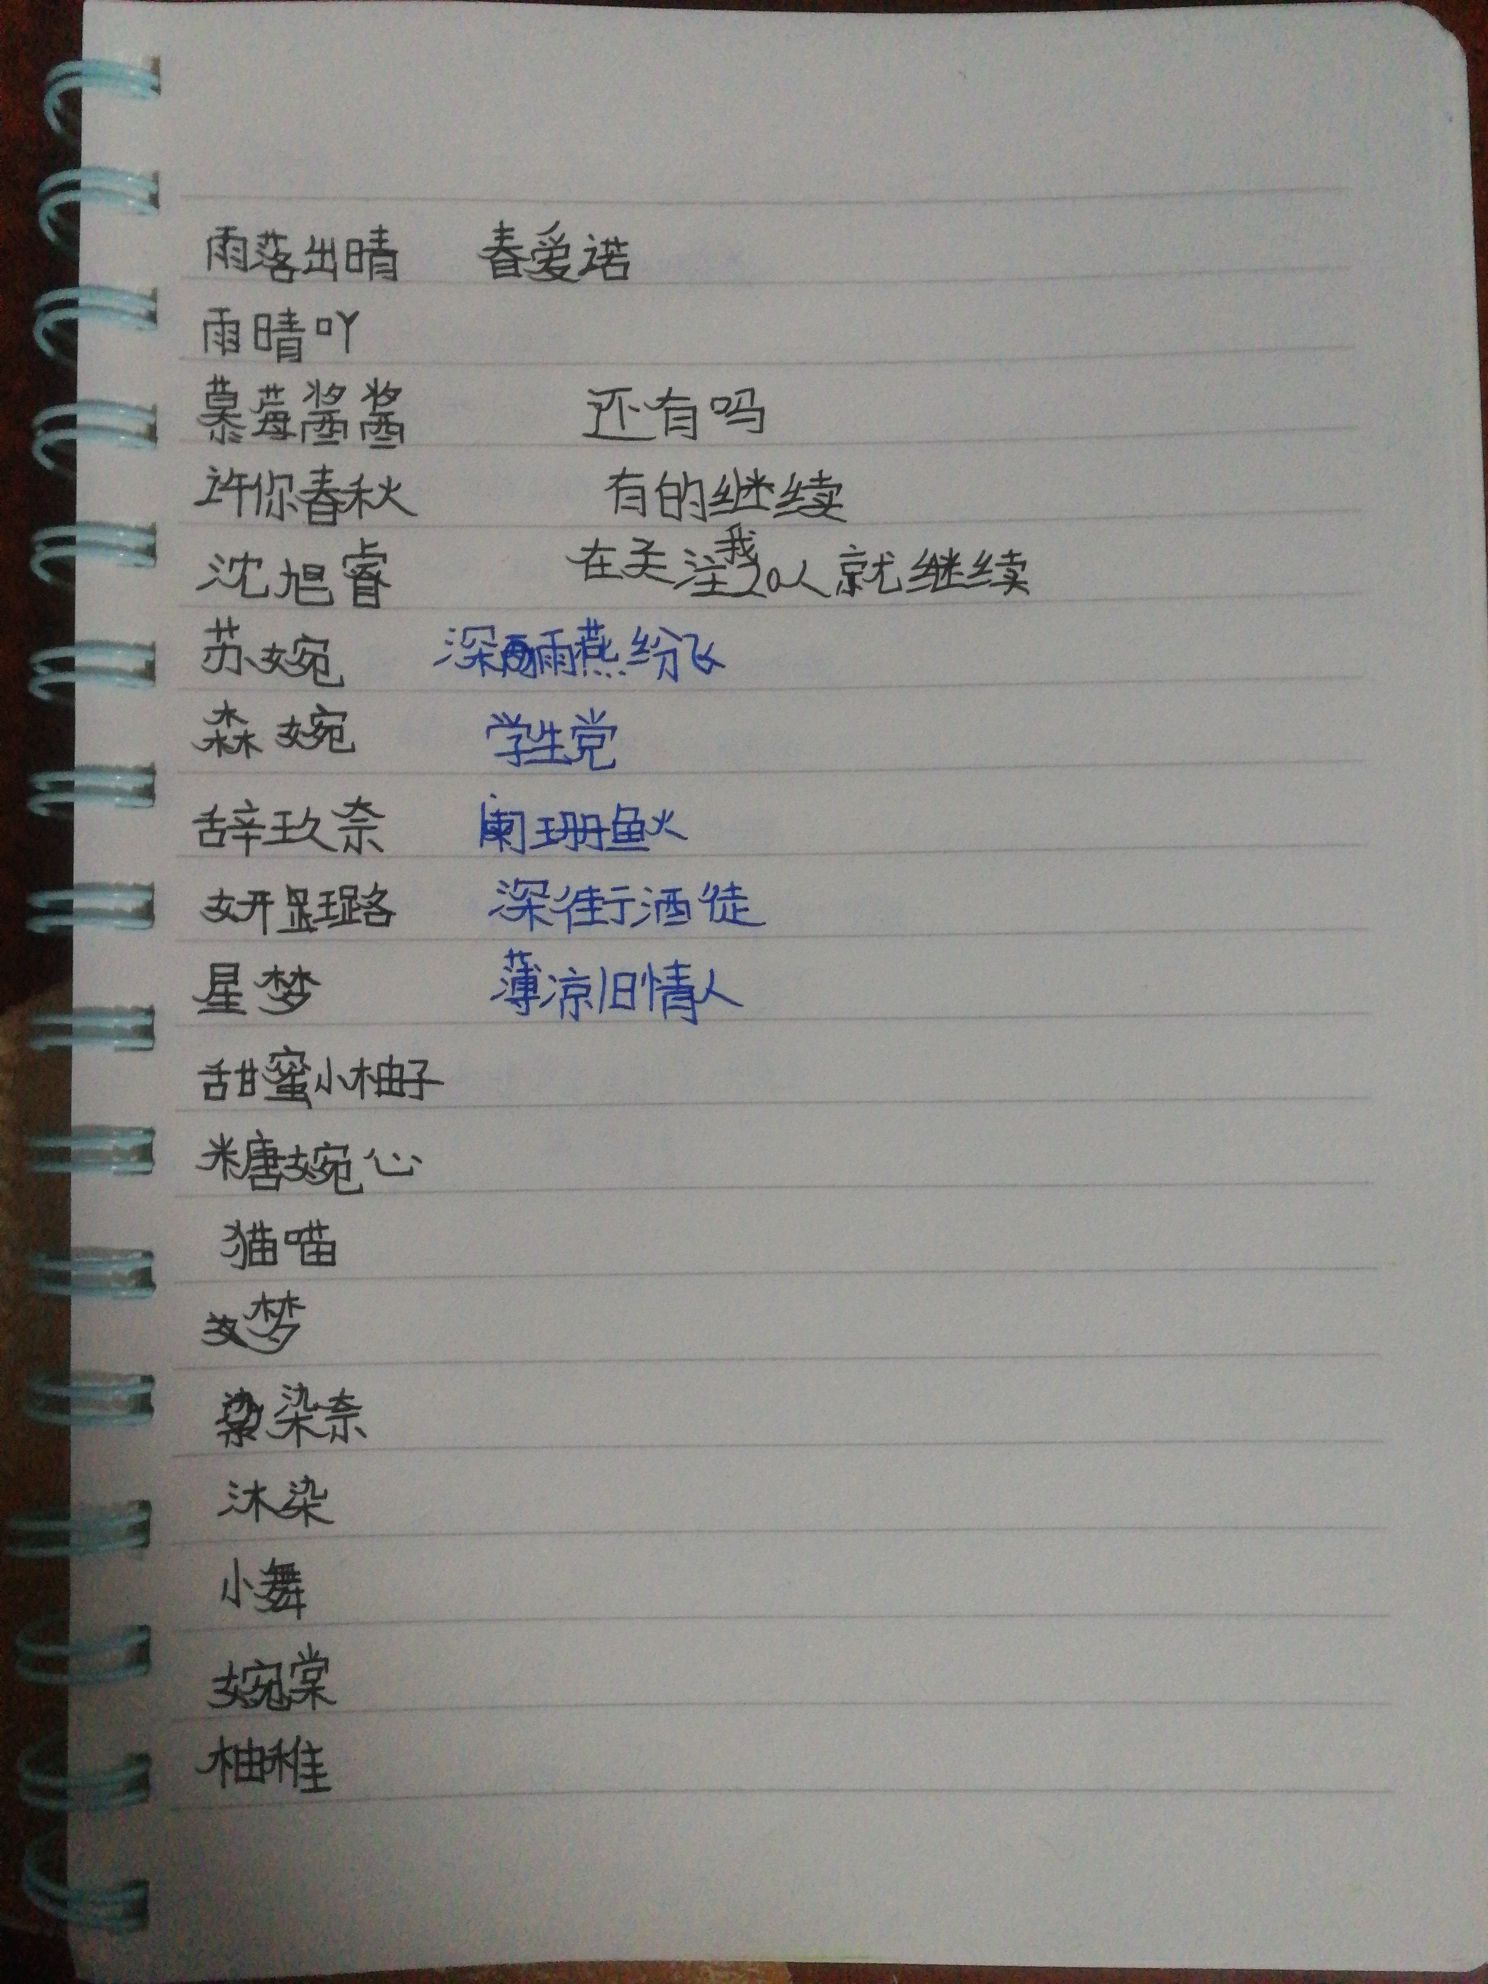 雨落出晴 春爱诺
雨晴吖
慕莓酱酱 还有吗
许你春秋 有的继续
沈旭睿 在关注我20人就继续
苏婉 深雨燕纷飞
森婉 学生党
辞玖奈 阑珊鱼火
妍 璐 深街酒徒
星梦 薄凉旧情人
甜蜜小柚子
糖婉心
猫喵
梦
染奈
沐染
小舞
婉棠
柚稚